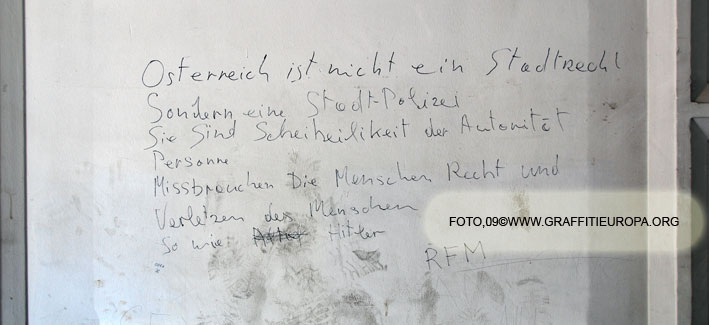 Österreich ist nicht ein Stadtrecht
Sondern eine Stadt-Polizei
Sie Sind Scheiheilikeit der Autorität
Personne
Missbrauchen Die Menschen Recht und
Verletzen des Menschen
So wie Hitler
RFM
FOTO,09©WWW.GRAFFITIEUROPA.ORG